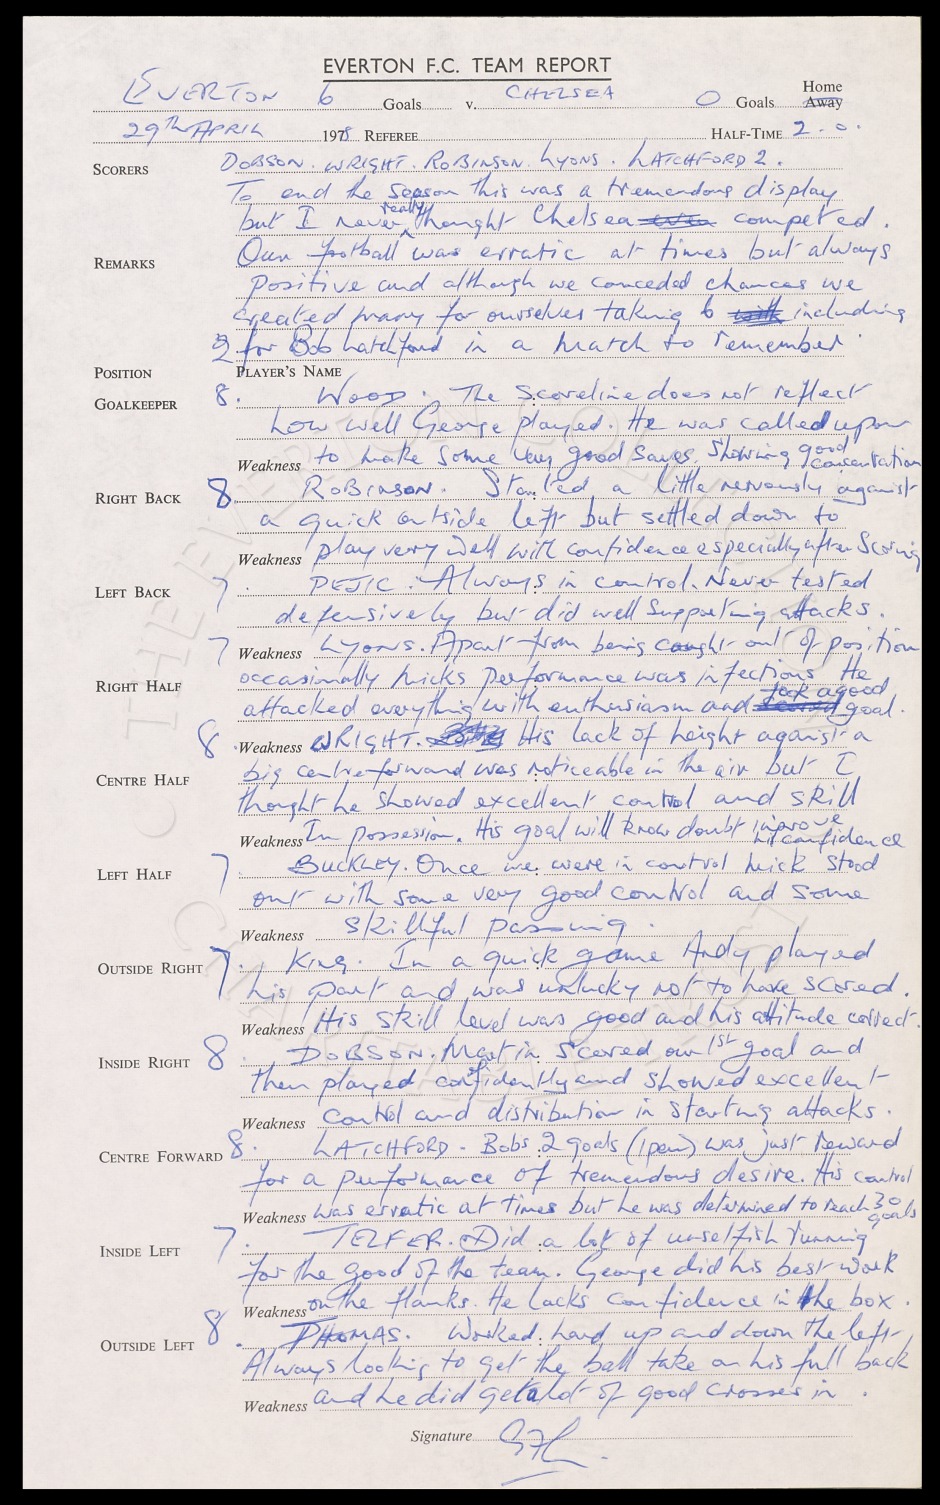 EVERTON F.C. TEAM REPORT
EVERTON 6 Goals v. CHELSEA 0 Goals Home Away
29TH APRIL 1978 REFEREE HALF-TIME 2-0.
SCORERS DOBSON. WRIGHT. ROBINSON. LYONS. LATCHFORD 2.
To end the season this was a tremendous display
but I never really thought Chelsea competed.
REMARKS Our football was erratic at times but always
positive and although we conceded chances we
created many for ourselves taking 6 including
2 for Bob Latchford in a match to remember.
POSITION PLAYER'S NAME
GOALKEEPER 8. WOOD. The scoreline does not reflect
how well George played. He was called upon
Weakness to make some very good saves. Showing good concentration
RIGHT BACK 8 ROBINSON. Started a little nervously against
a quick outside left but settled down to
Weakness play very well with confidence especially after scoring
LEFT BACK 7. PEJIC. Always in control. Never tested
defensively but did well supporting attacks.
7 Weakness Lyons. Apart from being caught out of position
RIGHT HALF occasionally Micks performance was infectious. He
attacked everything with enthusiasm and took a good goal.
8. Weakness WRIGHT. His lack of height against a
CENTRE HALF big centre forward was noticeable in the air but I
thought he showed excellent control and skill
Weakness In possession. His goal will know doubt improve his confidence
LEFT HALF 7. BUCKLEY. Once we were in control Mick stood
out with some very good control and some
Weakness skillful passing.
OUTSIDE RIGHT 7. KING. In a quick game Andy played
his part and was unlucky not to have scored.
Weakness His skill level was good and his attitude correct.
INSIDE RIGHT 8. DOBSON. Martin scored our 1st goal and
then played confidently and showed excellent
Weakness control and distribution in starting attacks.
CENTRE FORWARD 8. LATCHFORD - Bobs 2 goals (1pen) was just reward
for a performance of tremendous desire. His control
Weakness was erratic at times but he was determined to reach 30 goals
INSIDE LEFT 7. TELFER. Did a lot of unselfish running
for the good of the team. George did his best work
Weakness on the flanks. He lacks confidence in the box.
OUTSIDE LEFT 8. THOMAS. Worked hard up and down the left.
Always looking to get the ball take on his full back
Weakness and he did get a lot of good crosses in.
Signature